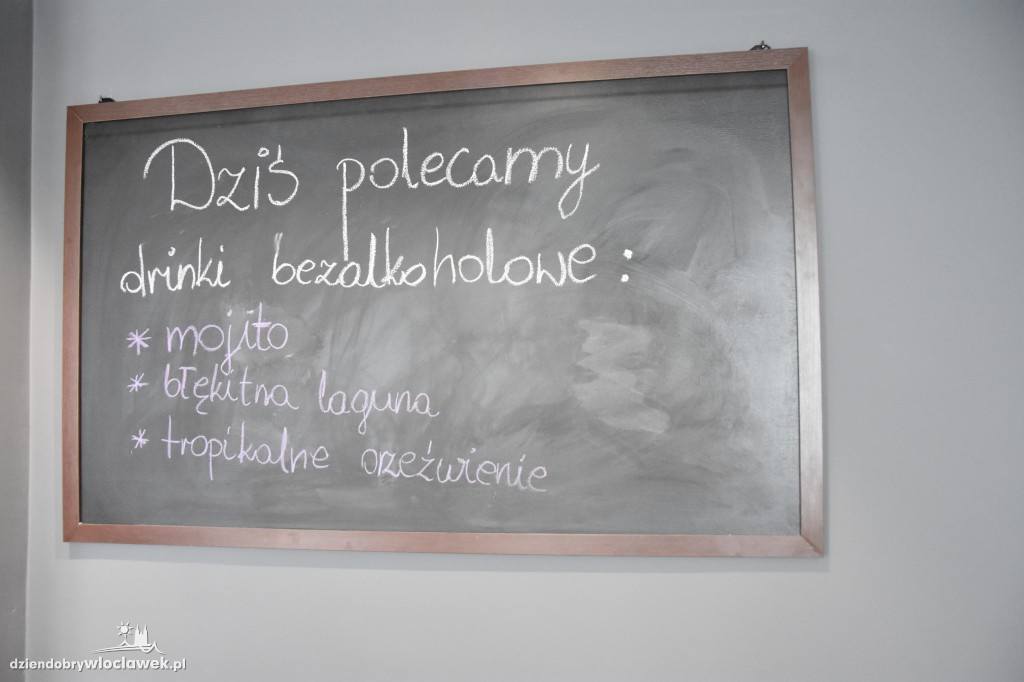 Dziś polecamy
drinki bezalkoholowe:
* mojito
* błękitna laguna
* tropikalne orzeźwienie
dziendobrywloclawek.pl